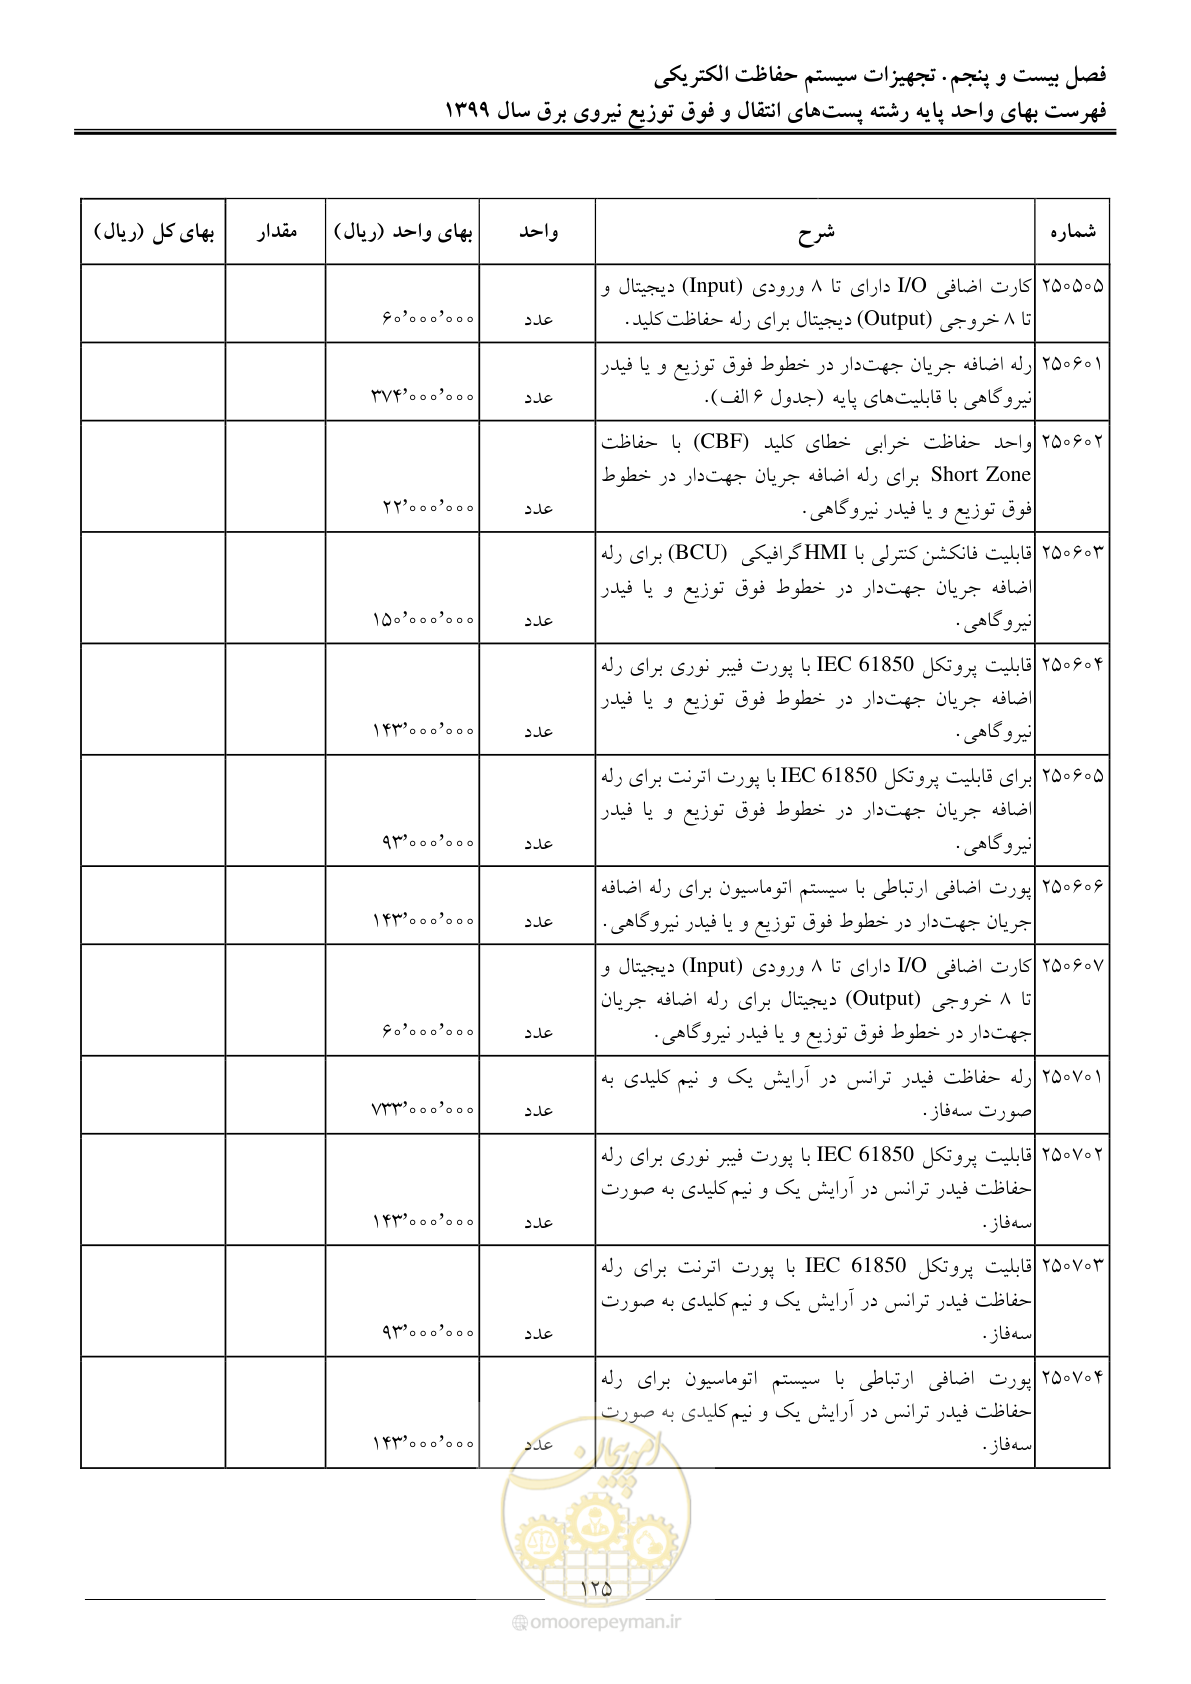 فصل بیست و پنجم. تجهیزات سیستم حفاظت الکتریکی
فهرست بهای واحد پایه رشته پست‌های انتقال و فوق توزیع نیروی برق سال ۱۳۹۹
شماره شرح واحد بهای واحد (ریال) مقدار بهای کل (ریال)
۲۵۰۵۰۵ کارت اضافی I/O دارای تا ۸ ورودی (Input) دیجیتال و
تا ۸ خروجی (Output) دیجیتال برای رله حفاظت کلید. عدد ۶۰٬۰۰۰٬۰۰۰
۲۵۰۶۰۱ رله اضافه جریان جهت‌دار در خطوط فوق توزیع و یا فیدر
نیروگاهی با قابلیت‌های پایه (جدول ۶ الف). عدد ۳۷۴٬۰۰۰٬۰۰۰
۲۵۰۶۰۲ واحد حفاظت خرابی خطای کلید (CBF) با حفاظت
Short Zone برای رله اضافه جریان جهت‌دار در خطوط
فوق توزیع و یا فیدر نیروگاهی. عدد ۲۲٬۰۰۰٬۰۰۰
۲۵۰۶۰۳ قابلیت فانکشن کنترلی با HMI گرافیکی (BCU) برای رله
اضافه جریان جهت‌دار در خطوط فوق توزیع و یا فیدر
نیروگاهی. عدد ۱۵۰٬۰۰۰٬۰۰۰
۲۵۰۶۰۴ قابلیت پروتکل IEC 61850 با پورت فیبر نوری برای رله
اضافه جریان جهت‌دار در خطوط فوق توزیع و یا فیدر
نیروگاهی. عدد ۱۴۳٬۰۰۰٬۰۰۰
۲۵۰۶۰۵ برای قابلیت پروتکل IEC 61850 با پورت اترنت برای رله
اضافه جریان جهت‌دار در خطوط فوق توزیع و یا فیدر
نیروگاهی. عدد ۹۳٬۰۰۰٬۰۰۰
۲۵۰۶۰۶ پورت اضافی ارتباطی با سیستم اتوماسیون برای رله اضافه
جریان جهت‌دار در خطوط فوق توزیع و یا فیدر نیروگاهی. عدد ۱۴۳٬۰۰۰٬۰۰۰
۲۵۰۶۰۷ کارت اضافی I/O دارای تا ۸ ورودی (Input) دیجیتال و
تا ۸ خروجی (Output) دیجیتال برای رله اضافه جریان
جهت‌دار در خطوط فوق توزیع و یا فیدر نیروگاهی. عدد ۶۰٬۰۰۰٬۰۰۰
۲۵۰۷۰۱ رله حفاظت فیدر ترانس در آرایش یک و نیم کلیدی به
صورت سه‌فاز. عدد ۷۳۳٬۰۰۰٬۰۰۰
۲۵۰۷۰۲ قابلیت پروتکل IEC 61850 با پورت فیبر نوری برای رله
حفاظت فیدر ترانس در آرایش یک و نیم کلیدی به صورت
سه‌فاز. عدد ۱۴۳٬۰۰۰٬۰۰۰
۲۵۰۷۰۳ قابلیت پروتکل IEC 61850 با پورت اترنت برای رله
حفاظت فیدر ترانس در آرایش یک و نیم کلیدی به صورت
سه‌فاز. عدد ۹۳٬۰۰۰٬۰۰۰
۲۵۰۷۰۴ پورت اضافی ارتباطی با سیستم اتوماسیون برای رله
حفاظت فیدر ترانس در آرایش یک و نیم کلیدی به صورت
سه‌فاز. عدد ۱۴۳٬۰۰۰٬۰۰۰
امور پیمان
۱۲۵
omoorepeyman.ir